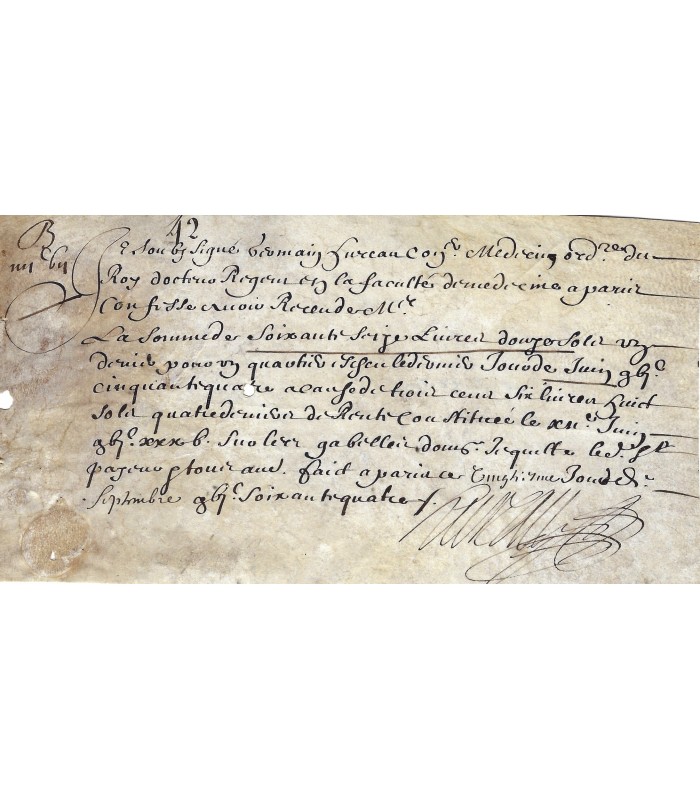 42
B
Je soubsigné Germain Hureau Con.er Medecin ord.re du
Roy docteur Regent en la faculté de medecine a paris
Confesse avoir Receu de M.r
La Somme de Soixante seize Livres douze Solz un
denier pour un quartier escheu le dernier Jour de Juin gbj.c
cinquante quatre a cause de trois cens Six livres huict
Solz quatre deniers de Rente Constituée le xii.e Juin
gbj.c xxxb. Sur les gabelles dont Je quitte led. S.r
payeur et tous aus. faict a paris ce Vingtiesme Jour de
Septembre gbj.c Soixante quatre